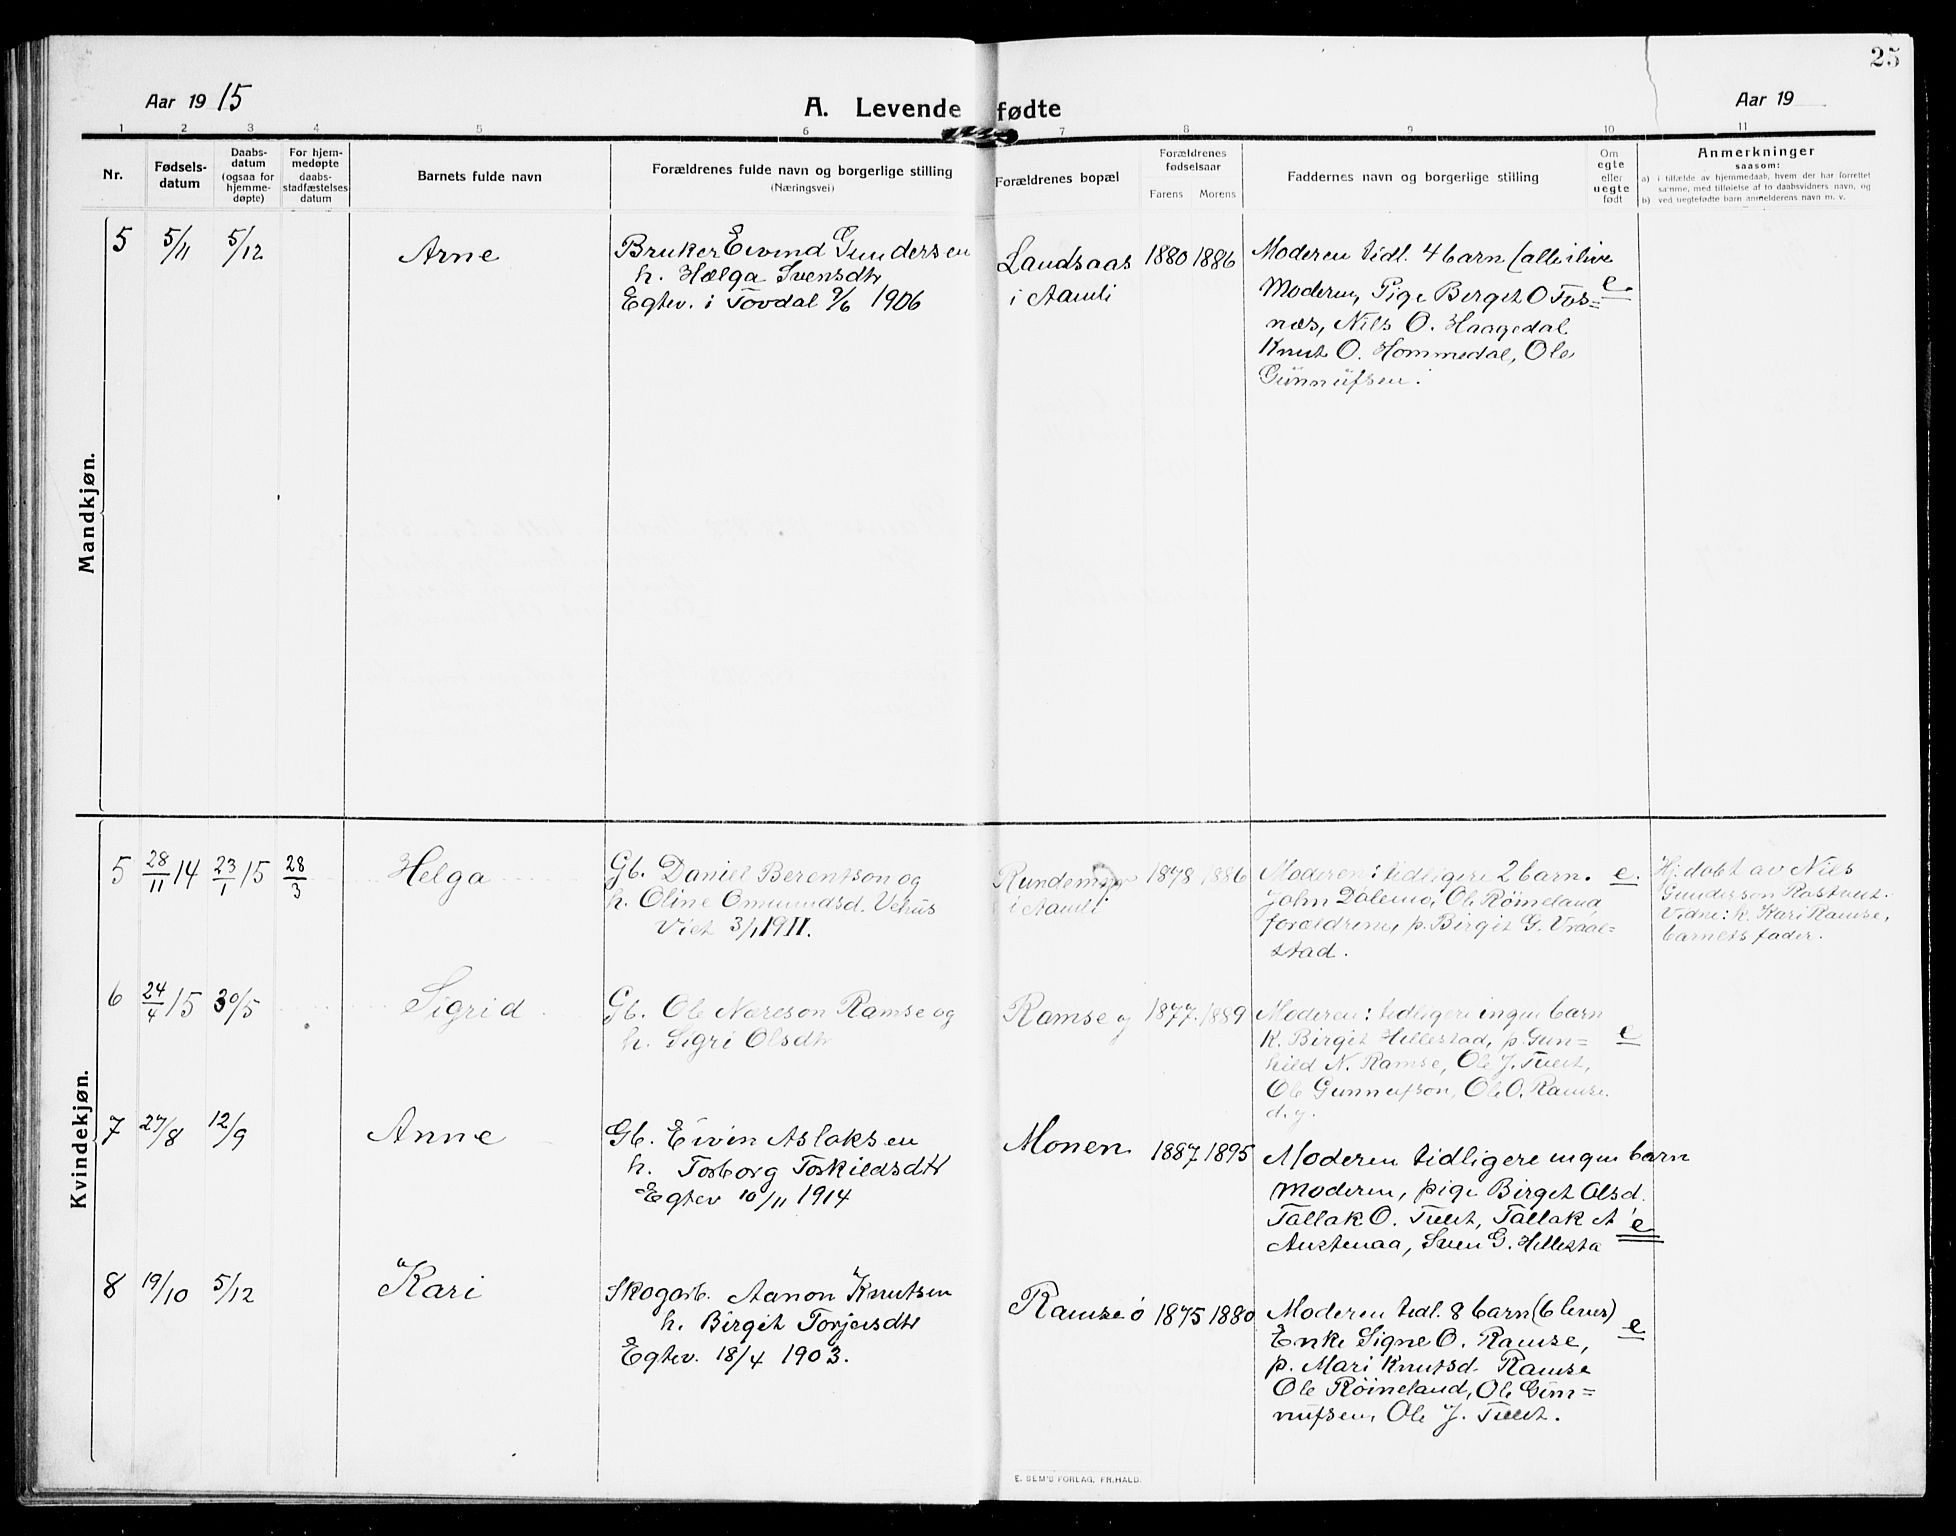 25
Aar 1915
A. Levende fødte
Aar 19
1 2 3 4 5 6 7 8 9 10 11
Nr.
Fødsels-
datum
Daabs-
datum
(ogsaa for
hjemme-
døpte)
For hjem-
medøpte
daabs-
stadfæstelses
datum
Barnets fulde navn
Forældrenes fulde navn og borgerlige stilling
(Næringsvei)
Forældrenes bopæl
Forældrenes
fødselsaar
Farens Morens
Faddernes navn og borgerlige stilling
Om
egte
eller
uegte
født
Anmerkninger
saasom:
a) i tilfælde av hjemmedaab, hvem der har forrettet
samme, med tilføielse af to daabsvidners navn, og
b) ved uegtefødte barn anmelderens navn m. v.
Mandkjøn.
5 5/11 5/12 Arne
Bruker Eivind Gundersen
h. Hælga Svensdtr
Egtev. i Tovdal 9/6 1906
Landsaas
i Aamli
1880 1886
Moderen tidl. 4 barn (alle ilive
Moderen, Pige Berget O Fos=
næs, Nils O. Haagedal
Knut O. Hommedal, Ole
Gunnufsen.
e
Kvindekjøn.
5 28/11 14 23/1 15 28/3 Helga
Gb. Daniel Berentson og
h. Oline Omundsd. Vehus
Viet 3/1 1911.
i Aamli
1878 1886
Moderen: tidligere 2 barn.
John Dalemo, Ole Røineland
foreldrene, p. Birgit G. Vraal=
stad.
e.
Hj. døbt av Niels
Gunderson Rastveit.
Vidne: k. Kari Ramse,
barnets fader.
6 24/4 15 30/5 Sigrid
Gb. Ole Nereson Ramse og
h. Sigri Olsdtr
Ramse
1877. 1889
Moderen: tidligere ingen barn
K. Birgit Hillestad, p. Gun=
hild N. Ramse, Ole J. Tveit,
Ole Gunnufson, Ole O. Ramse
d. y.
e
7 27/8 12/9 Anne
Gb. Eivin Aslaksen
h. Torborg Torkildsdtr
Egtev 10/11 1914
Monen
1887. 1895
Moderen tidligere ingen barn
Moderen, pige Birget Olsd.
Tallak O. Tveit, Tallak A
Austenaa, Sven G. Hillesta
e
8 19/10 5/12 Kari
Skogarb. Aanon Knutsen
h. Birgit Torjersdtr
Egtev. 18/4 1903.
Ramse ø
1875 1880
Moderen tidl. 8 barn (6 lever)
Enke Signe O. Ramse,
p. Mari Knutsd. Ramse
Ole Røineland, Ole Gun=
nufsen, Ole J. Tveit.
e
E. SEM'S FORLAG, FR.HALD.